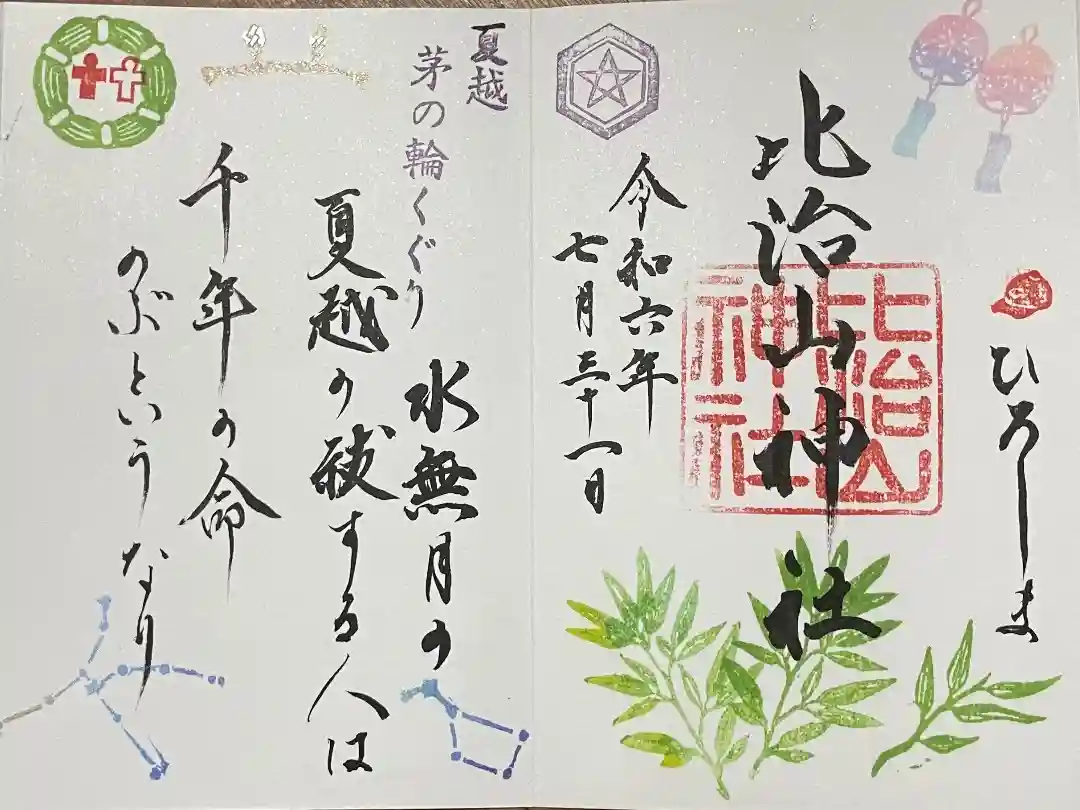 ひろしま
比治山神社
比治山
神社
令和六年
七月三十一日
夏越
茅の輪くぐり
水無月の
夏越の祓する人は
千年の命
のぶというなり